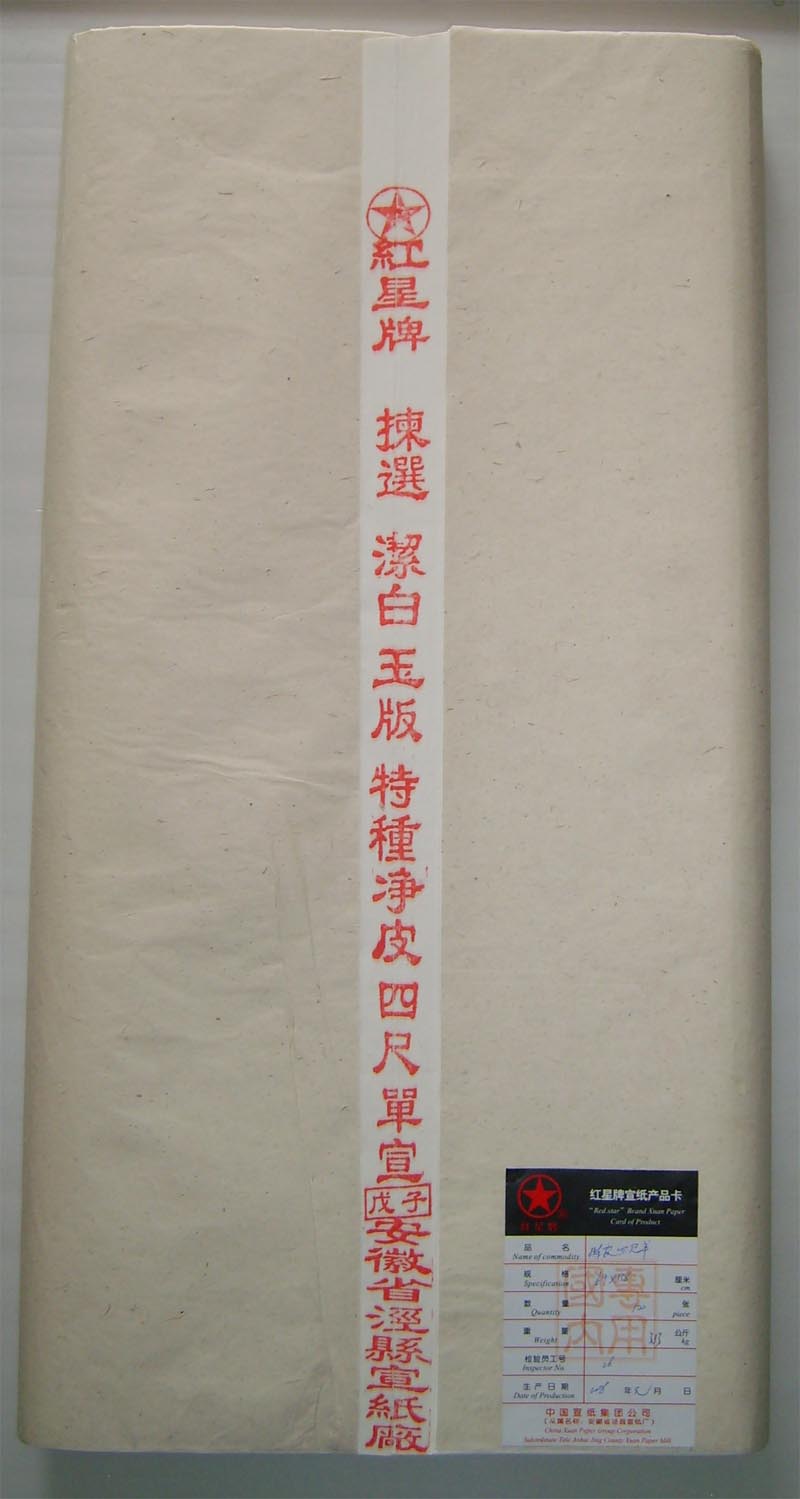 紅星牌 揀選 潔白 玉版 特種净皮 四尺 單宣
戊子
安徽省涇縣宣紙廠
红星牌
红星牌宣纸产品卡
"Red star" Brand Xuan Paper
Card of Product
品 名
Name of commodity
规 格 厘米
Specification cm
数 量 张
Quantity piece
重 量 公斤
Weight kg
检验员工号
Inspector No.
生产日期 年 月 日
Date of Production
專用
國内
中国宣纸集团公司
(从属名称:安徽省泾县宣纸厂)
China Xuan Paper Group Corporation
Subordinate Title Anhui Jing County Xuan Paper Mill